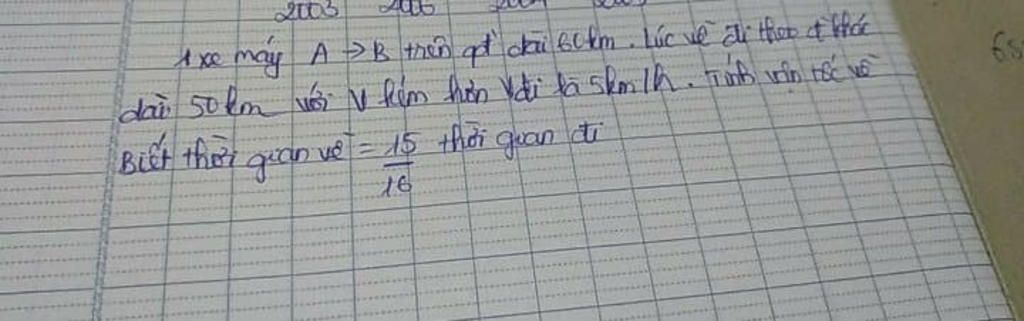 2003
1 xe máy A → B trên qđ dài 60km. Lúc về đi theo đ khác
dài 50km với V kém hơn Vđi là 5km/h. Tính vận tốc về
Biết thời gian về = 15/16 thời gian đi